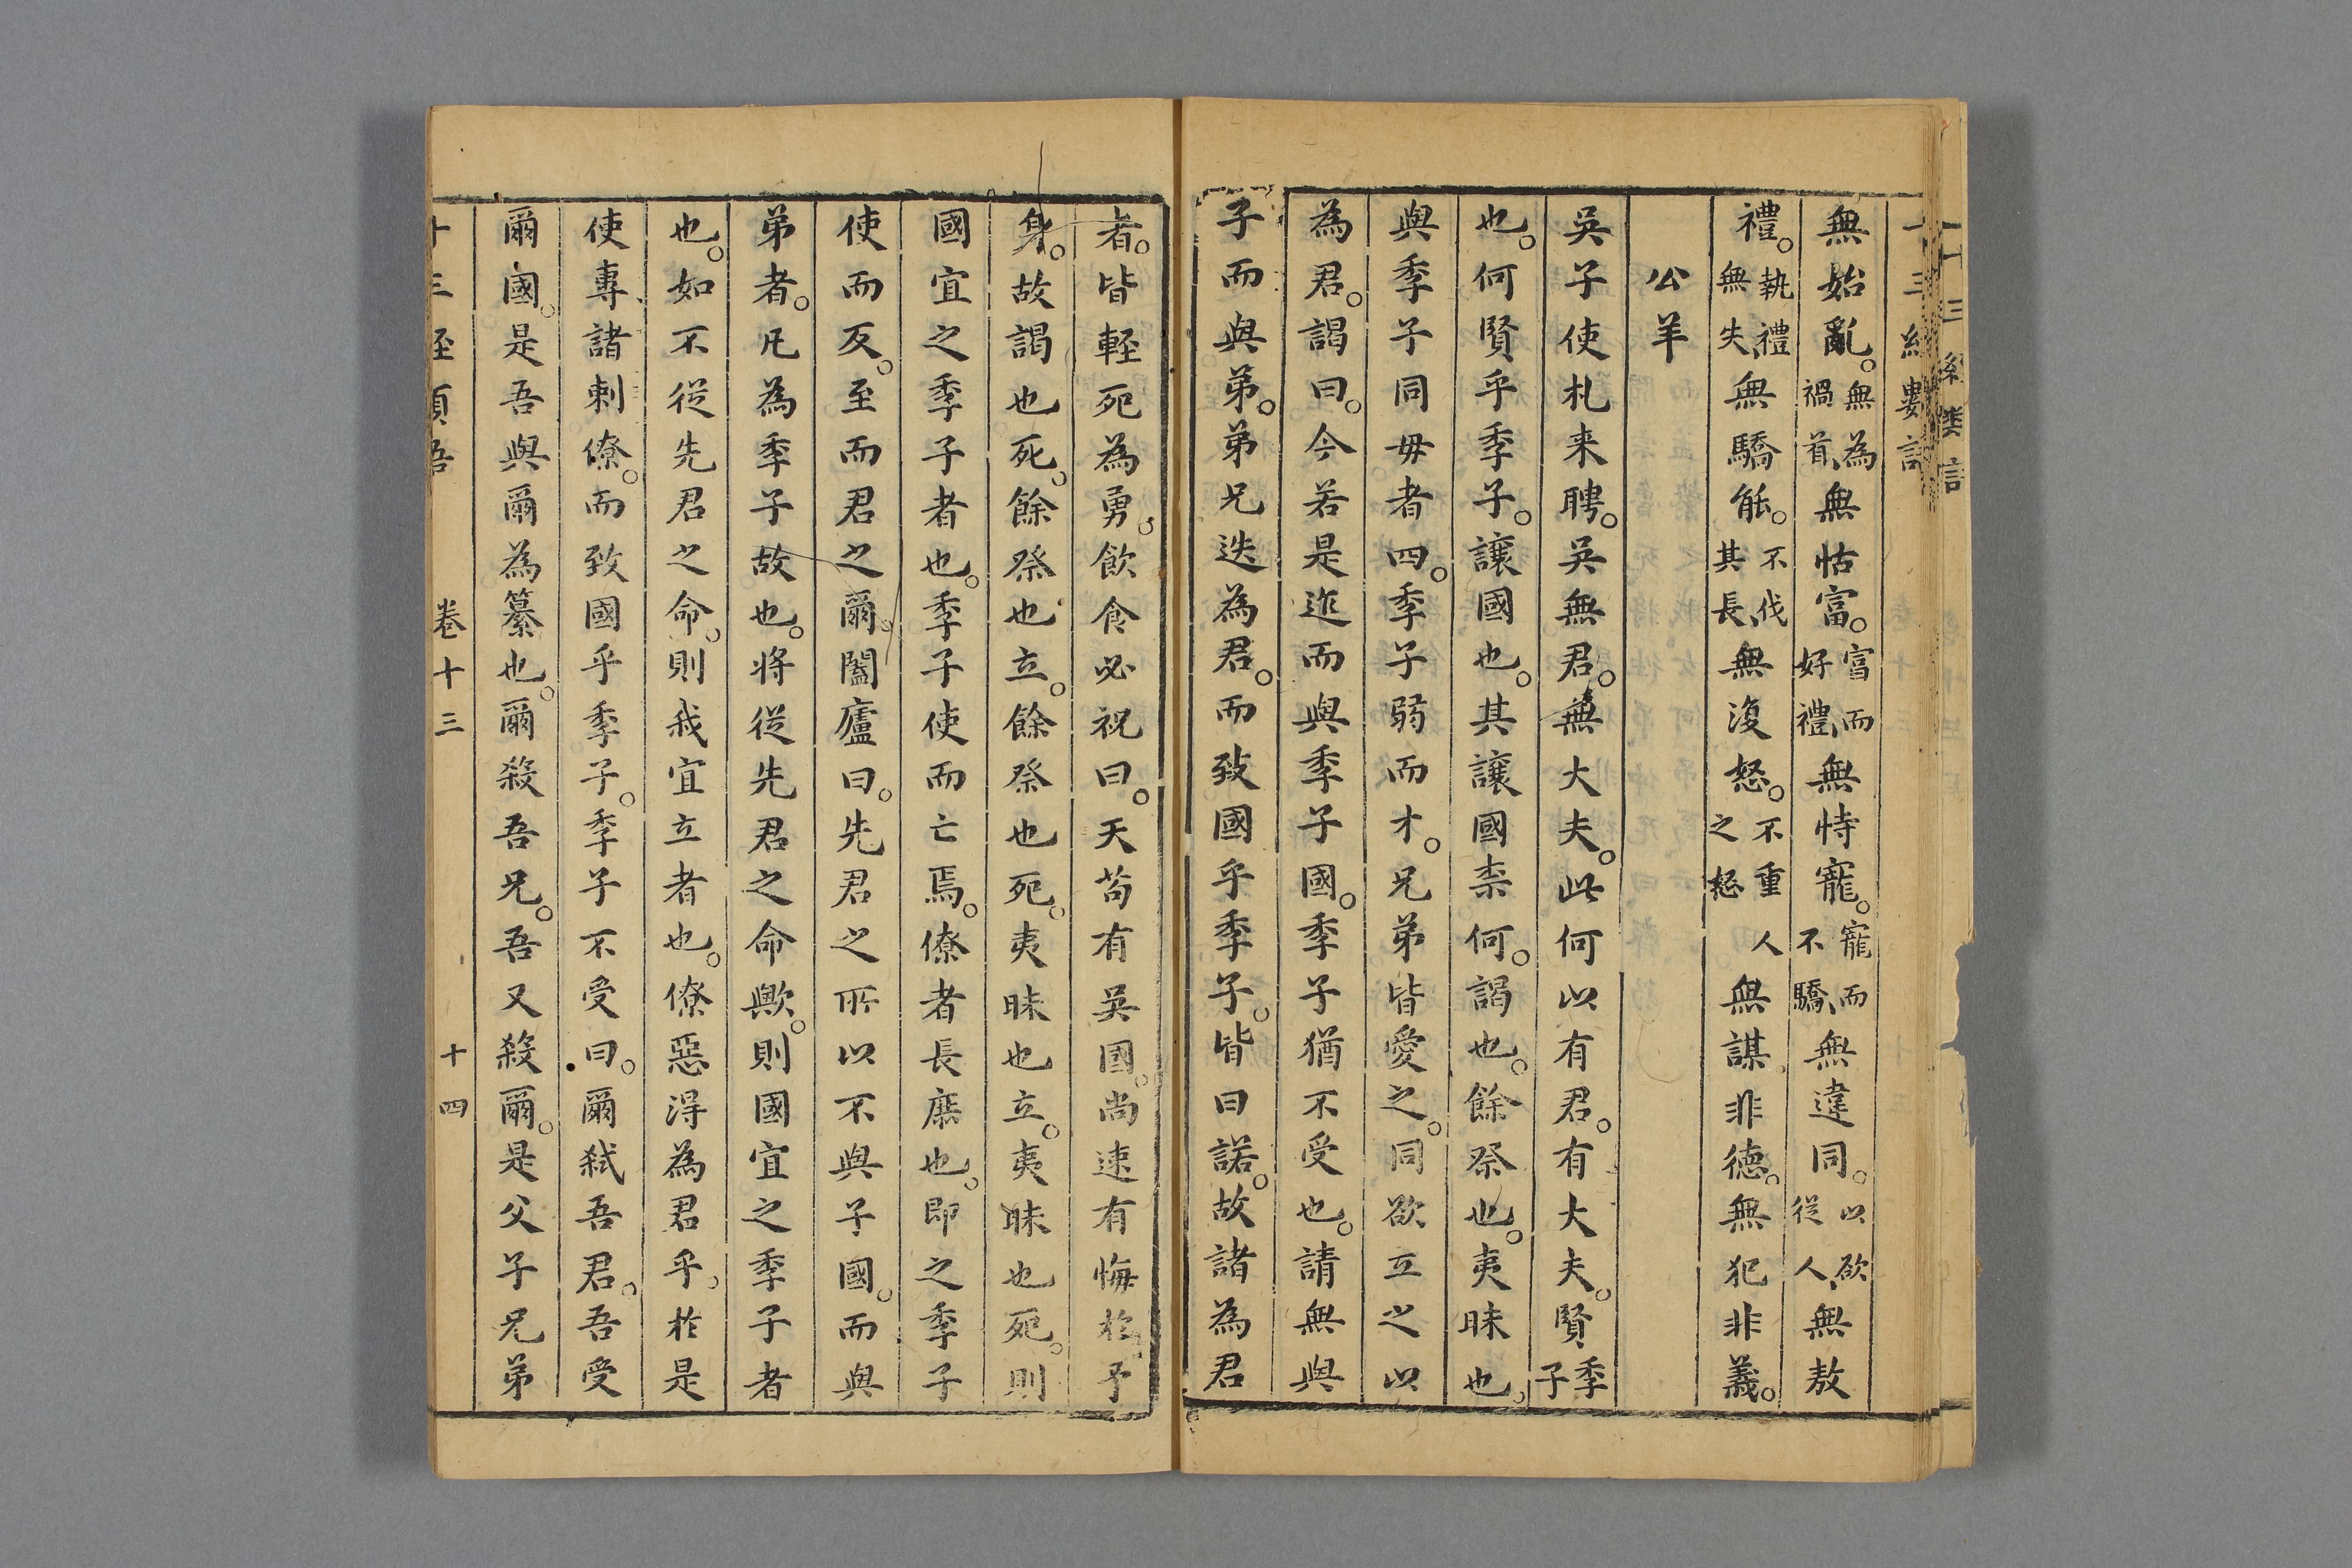 十三經類語
無始亂。無為禍首、無怙富。富而好禮、無恃寵。寵而不驕、無違同。以欲從人、無敖
禮。執禮無失、無驕能。不伐其長、無復怒。不重人之怒無謀非德。無犯非義。
公羊
吳子使札来聘。吳無君。無大夫。此何以有君。有大夫。賢季子
也。何賢乎季子。讓國也。其讓國柰何。謁也。餘祭也。夷昧也。
與季子同毋者四。季子弱而才。兄弟皆愛之。同欲立之以
為君。謁曰。今若是迮而與季子國。季子猶不受也。請無與
子而與弟。弟兄迭為君。而致國乎季子。皆曰諾。故諸為君
者。皆輕死為勇。飲食必祝曰。天苟有吳國。尚速有悔於予
身。故謁也死。餘祭也立。餘祭也死。夷昧也立。夷昧也死。則
國宜之季子者也。季子使而亡焉。僚者長庶也。即之季子
使而反。至而君之爾。闔廬曰。先君之所以不與子國。而與
弟者。凡為季子故也。將從先君之命歟。則國宜之季子者
也。如不從先君之命。則我宜立者也。僚惡得為君乎。於是
使專諸刺僚。而致國乎季子。季子不受曰。爾弒吾君。吾受
爾國。是吾與爾為簒也。爾殺吾兄。吾又殺爾。是父子兄弟
卷十三 十四